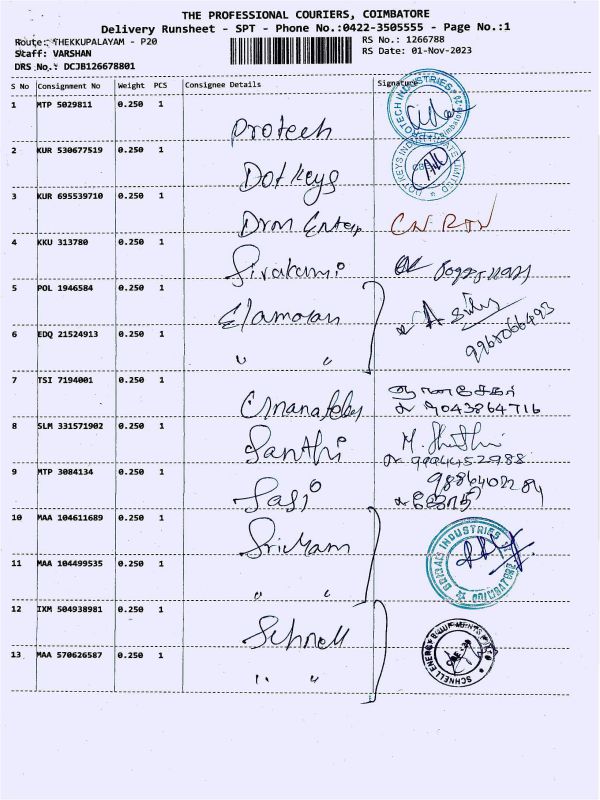 THE PROFESSIONAL COURIERS, COIMBATORE
Delivery Runsheet - SPT - Phone No.:0422-3505555 - Page No.:1
Route: THEKKUPALAYAM - P20 RS No.: 1266788
Staff: VARSHAN RS Date: 01-Nov-2023
DRS No.: DCJB126678801
S No Consignment No Weight PCS Consignee Details Signature
1 MTP 5029811 0.250 1
Protech
2 KUR 530677519 0.250 1
Dotkeys
3 KUR 695539710 0.250 1
4 KKU 313780 0.250 1
Sivakami
5 POL 1946584 0.250 1
6 EDQ 21524913 0.250 1
" "
7 TSI 7194001 0.250 1
9043864716
8 SLM 331571902 0.250 1
Santhi
9994452988
9 MTP 3084134 0.250 1
Sasi
10 MAA 104611689 0.250 1
SriRam INDUSTRIES
11 MAA 104499535 0.250 1
" "
12 IXM 504938981 0.250 1
Schnell SCHNELL ENERGY EQUIPMENTS
13 MAA 570626587 0.250 1
" "